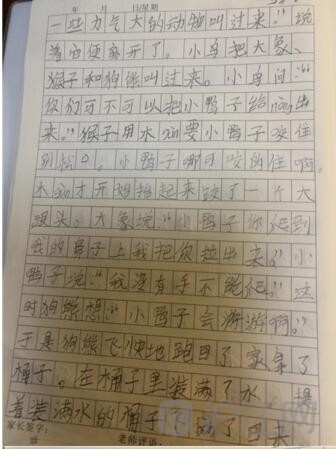 日/星期
一些力气大的动物叫过来。”说
着它便离开了。小鸟把大象、
猴子和狗熊叫过来。小鸟问:“
你们可不可以把小鸭子给nòng出
来。”猴子用木gùn要小鸭子咬住
别松口。小鸭子哪可咬的住啊。
木gùn才开始抬起来跌了一个大
跟头。大象说:“小鸭子你爬到
我的鼻子上我把你拉出来。”小
鸭子说:“我没有手不能爬。”这
时狗熊想:“小鸭子会游泳啊。”
于是狗熊飞快地跑回了家拿了
桶子。在桶子里装满了水,提
着装满水的桶子了回来
家长签字:
老师评语: